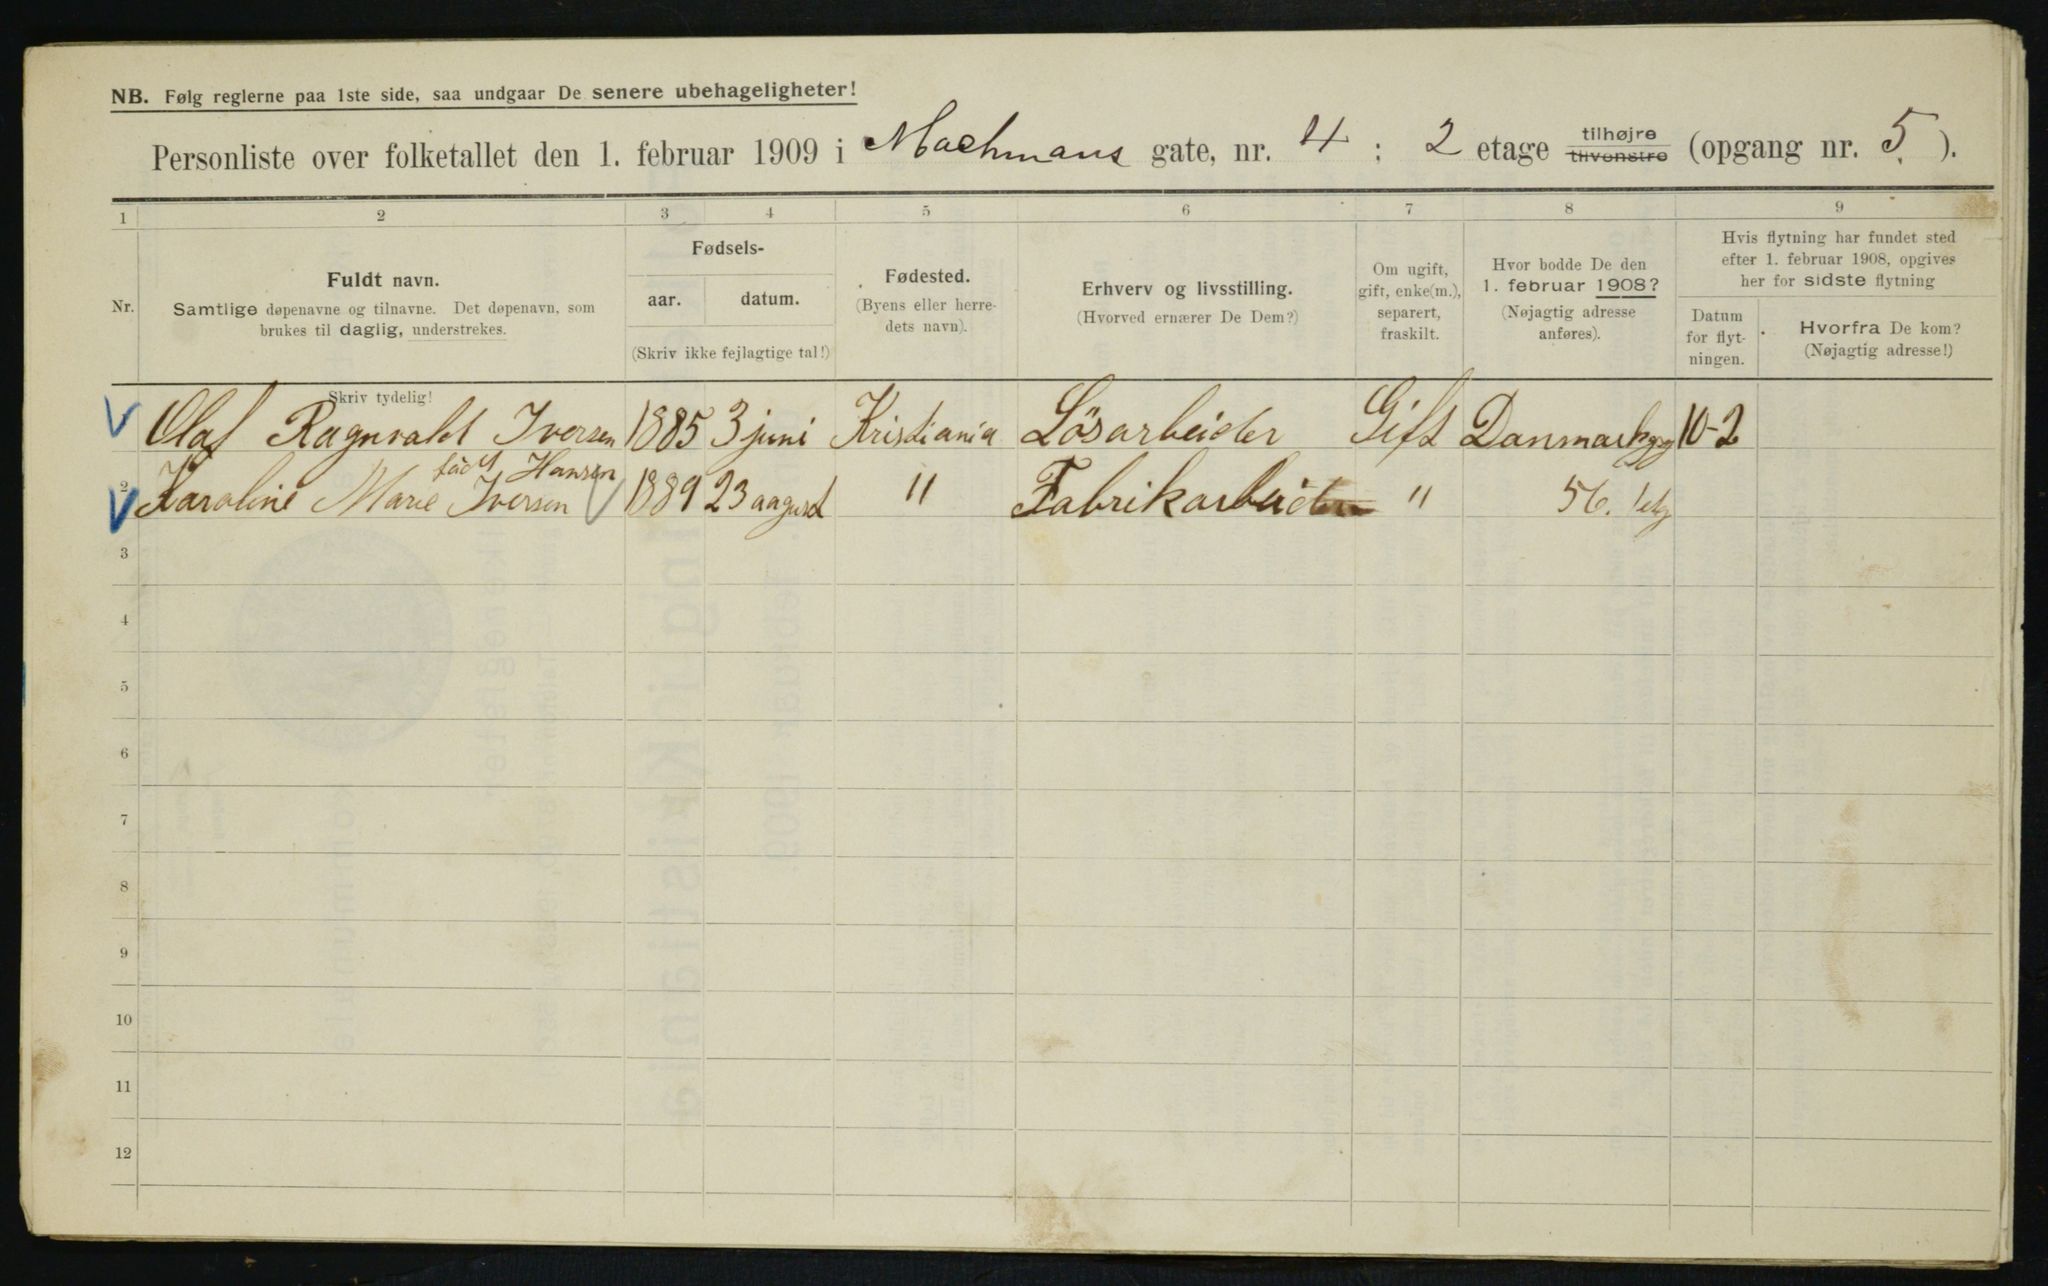 NB. Følg reglerne paa 1ste side, saa undgaar De senere ubehageligheter!
Personliste over folketallet den 1. februar 1909 i Maehmans gate, nr. 4 : 2 etage tilhøjre tilvenstre (opgang nr. 5 ).
1 2 3 4 5 6 7 8 9
Nr.
Fuldt navn.
Samtlige døpenavne og tilnavne. Det døpenavn, som
brukes til daglig, understrekes.
Skriv tydelig!
Fødsels-
aar. datum.
(Skriv ikke fejlagtige tal!)
Fødested.
(Byens eller herre-
dets navn).
Erhverv og livsstilling.
(Hvorved ernærer De Dem?)
Om ugift,
gift, enke(m.),
separert,
fraskilt.
Hvor bodde De den
1. februar 1908?
(Nøjagtig adresse
anføres).
Hvis flytning har fundet sted
efter 1. februar 1908, opgives
her for sidste flytning
Datum
for flyt-
ningen.
Hvorfra De kom?
(Nøjagtig adresse!)
Olaf Ragnvald Iversen 1885 3 juni Kristiania Lösarbeider Gift Danmarkgg 10-2
født Hansen
2 Karoline Marie Iversen 1889 23 aagust " Fabrikarbeider " 56. 1etg
3
4
5
6
7
8
9
10
11
12